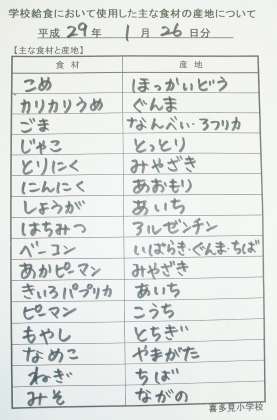 学校給食において使用した主な食材の産地について
平成 29 年 1 月 26 日分
【主な食材と産地】
食材 産地
こめ ほっかいどう
カリカリうめ ぐんま
ごま なんべい・アフリカ
じゃこ とっとり
とりにく みやざき
にんにく あおもり
しょうが あいち
はちみつ アルゼンチン
ベーコン いばらき・ぐんま・ちば
あかピーマン みやざき
きいろパプリカ あいち
ピーマン こうち
もやし とちぎ
なめこ やまがた
ねぎ ちば
みそ ながの
喜多見小学校